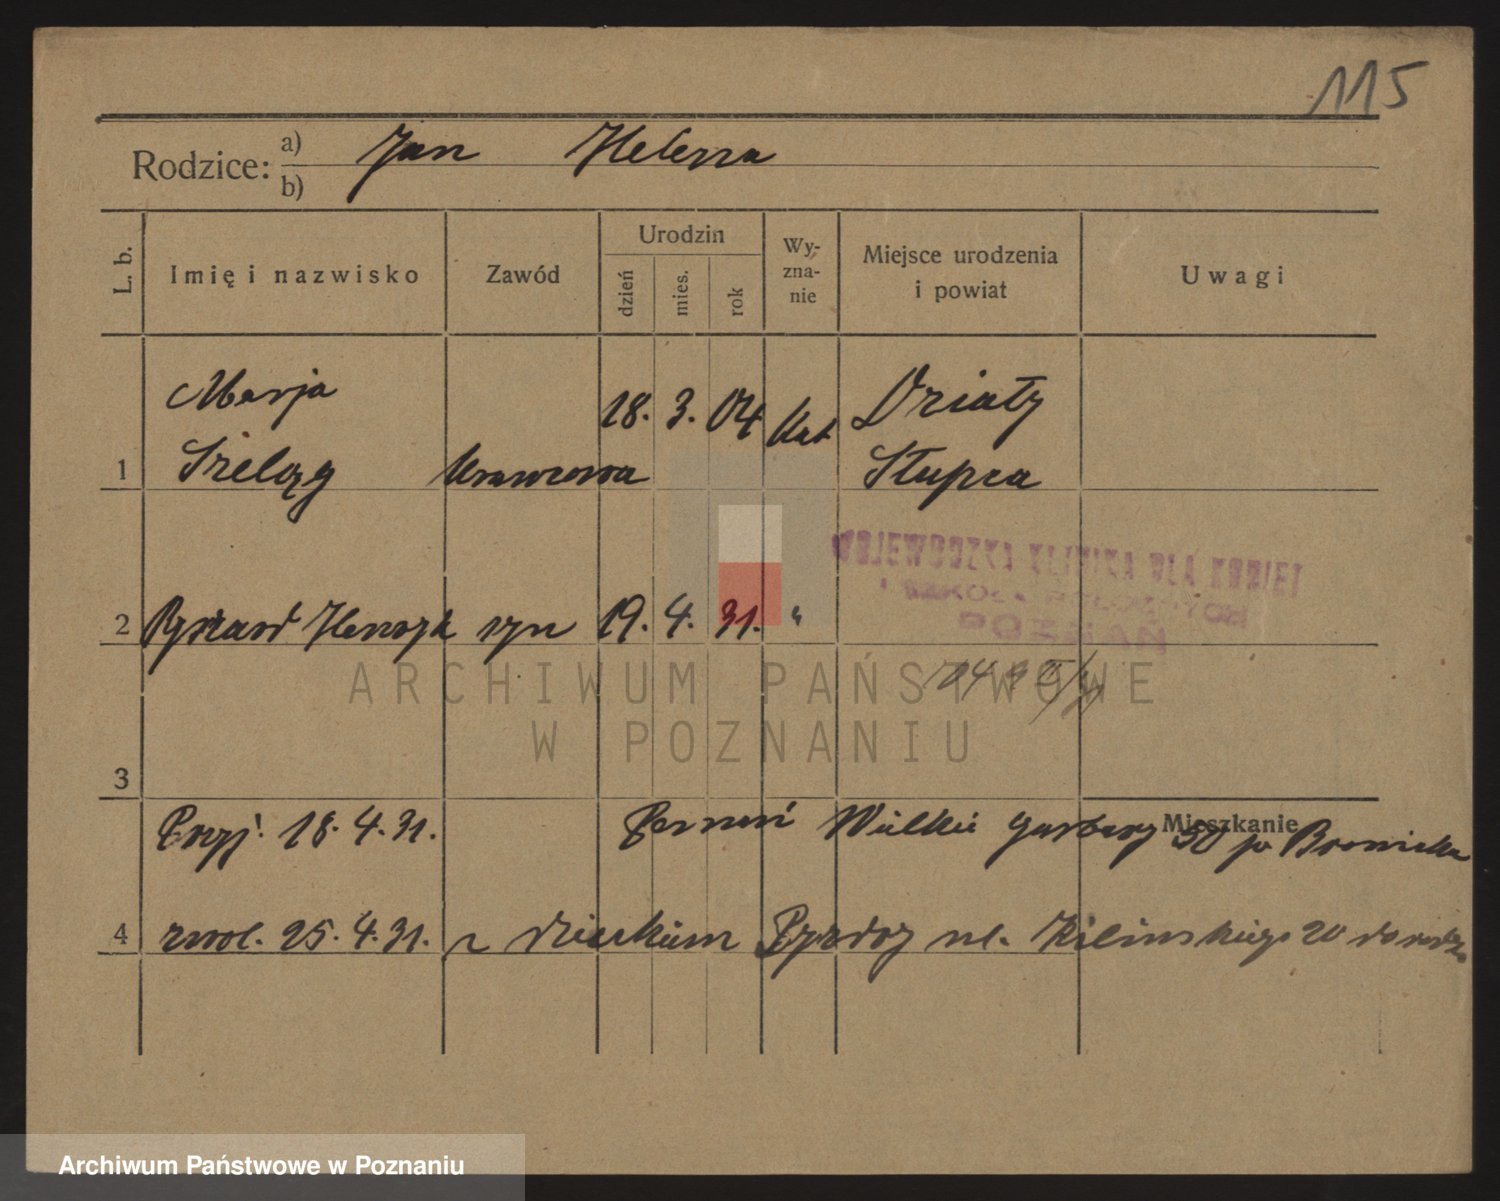 115
Rodzice: a) Jan Helena
b)
L. b. Imię i nazwisko Zawód Urodzin dzień mies. rok Wy-zna-nie Miejsce urodzenia i powiat Uwagi
Marja 18. 3. 04 Kat Działy
1 Szeląg krawcowa Słupca
WOJEWÓDZKA KLINIKA DLA KOBIET
I SZKOŁA POŁOŻNYCH
POZNAŃ
2 Ryszard Henryk syn 19. 4. 31. "
ARCHIWUM PAŃSTWOWE
W POZNANIU
3
Mieszkanie
Przyj. 18. 4. 31. Poznań Wielkie Garbary 50 p.
4 zwol. 25. 4. 31. z dzieckiem Pyzdry ul. Kilińskiego 20 do
Archiwum Państwowe w Poznaniu